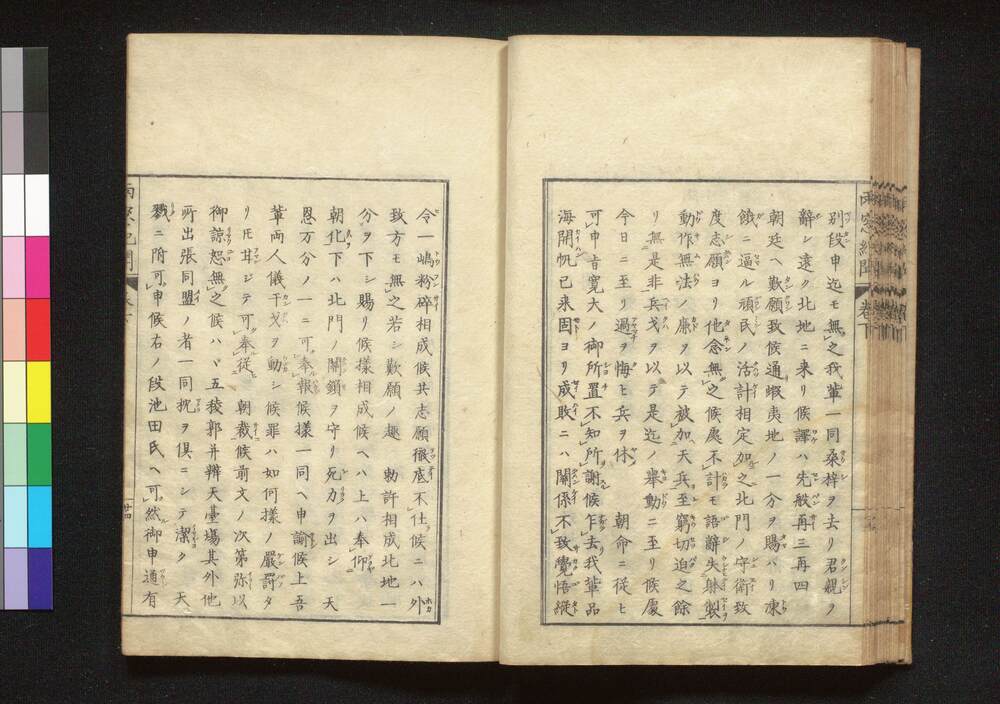 別段申迄モ無之我輩一同桑梓ヲ去リ君親ノ
辭シ遠ク北地ニ来リ候譯ハ先般再三再四
朝廷ヘ歎願致候通蝦夷地ノ一方ヲ賜ハリ凍
餓ニ逼ル頑民ノ活計相定加之北門ノ守衛致
度志願ヨリ他念無之候處不計モ語辭失躰製
動作無法ノ廉ヲ以テ被加天兵至窮切迫之餘
リ無是非兵戈ヲ以テ是迄ノ舉動ニ至リ候處
今日ニ至リ過ヲ悔ヒ兵ヲ休メ朝命ニ従ヒ
可申旨寛大ノ御所置不知所謝候乍去我輩品
海開帆已来固ヨリ成敗ニハ關係不致覺悟縦
雨窓紀聞 卷下
令一嶋粉碎相成候共志願徹底不仕候ニハ外
致方モ無之若シ歎願ノ趣 勅許相成北地一
分ヲ下シ賜リ候様相成候ヘハ上ハ奉仰
朝化下ハ北門ノ關鎖ヲ守リ死力ヲ出シ 天
恩万分ノ一ニ可奉報候様一同ヘ申諭候上吾
輩両人儀干戈ヲ動シ候罪ハ如何様ノ嚴罰タ
リ𪜈甘シテ可奉従 朝裁候前文ノ次第弥以
御諒恕無之候ハヽ五稜郭并辨天臺場其外他
所出張同盟ノ者一同枕ヲ倶ニシテ潔ク 天
戮ニ附可申候右ノ段池田氏ヘ可然御申通有